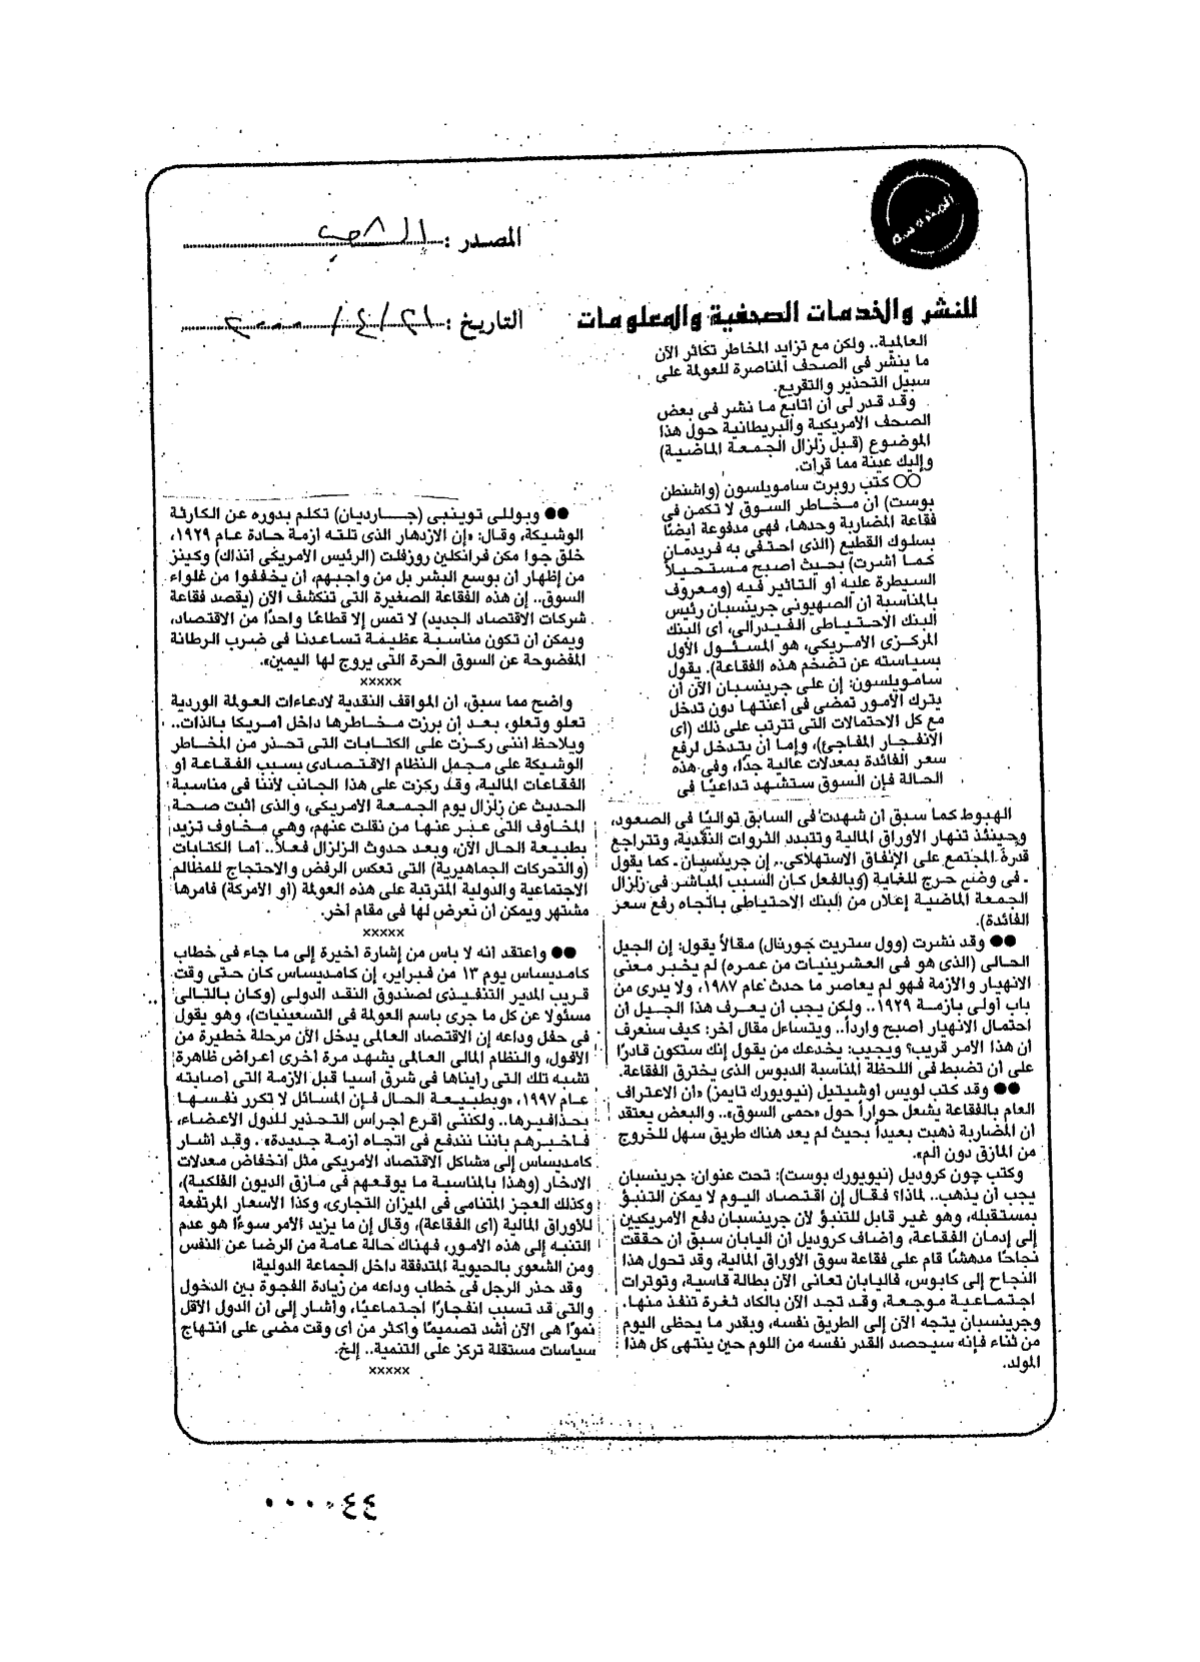 المصدر : الشعب
للنشر والخدمات الصحفية والمعلومات
التاريخ : ٢١/٤/٢٠٠٠
العالمية.. ولكن مع تزايد المخاطر تكاثر الآن
ما ينشر فى الصحف المناصرة للعولمة على
سبيل التحذير والتقريع.
وقد قدر لى أن أتابع ما نشر فى بعض
الصحف الأمريكية والبريطانية حول هذا
الموضوع (قبل زلزال الجمعة الماضية)
وإليك عينة مما قرأت.
○○ كتب روبرت سامويلسون (واشنطن
بوست) أن مخاطر السوق لا تكمن فى
فقاعة المضاربة وحدها، فهى مدفوعة أيضًا
بسلوك القطيع (الذى احتفى به فريدمان
كما أشرت) بحيث أصبح مستحيلاً
السيطرة عليه أو التأثير فيه (ومعروف
بالمناسبة أن الصهيونى جرينسبان رئيس
البنك الاحتياطى الفيدرالى، أى البنك
المركزى الأمريكى، هو المسئول الأول
بسياسته عن تضخم هذه الفقاعة). يقول
سامويلسون: إن على جرينسبان الآن أن
يترك الأمور تمضى فى أعنتها دون تدخل
مع كل الاحتمالات التى تترتب على ذلك (أى
الانفجار المفاجئ)، وإما أن يتدخل لرفع
سعر الفائدة بمعدلات عالية جدًا، وفى هذه
الحالة فإن السوق ستشهد تداعيًا فى
الهبوط كما سبق أن شهدت فى السابق تواليًا فى الصعود،
وحينئذ تنهار الأوراق المالية وتتبدد الثروات النقدية، وتتراجع
قدرة المجتمع على الإنفاق الاستهلاكى.. إن جرينسبان ـ كما يقول
ـ فى وضع حرج للغاية (وبالفعل كان السبب المباشر فى زلزال
الجمعة الماضية إعلان من البنك الاحتياطى باتجاه رفع سعر
الفائدة).
●● وقد نشرت (وول ستريت جورنال) مقالاً يقول: إن الجيل
الحالى (الذى هو فى العشرينيات من عمره) لم يخبر معنى
الانهيار والأزمة فهو لم يعاصر ما حدث عام ١٩٨٧، ولا يدرى من
باب أولى بأزمة ١٩٢٩.. ولكن يجب أن يعرف هذا الجيل أن
احتمال الانهيار أصبح وارداً.. ويتساءل مقال آخر: كيف سنعرف
أن هذا الأمر قريب؟ ويجيب: يخدعك من يقول إنك ستكون قادرًا
على أن تضبط فى اللحظة المناسبة الدبوس الذى يخترق الفقاعة.
●● وقد كتب لويس أوشيتيل (نيويورك تايمز) «أن الاعتراف
العام بالفقاعة يشعل حواراً حول «حمى السوق».. والبعض يعتقد
أن المضاربة ذهبت بعيداً بحيث لم يعد هناك طريق سهل للخروج
من المأزق دون ألم».
وكتب جون كروديل (نيويورك بوست): تحت عنوان: جرينسبان
يجب أن يذهب.. لماذا؟ فقال إن اقتصاد اليوم لا يمكن التنبؤ
بمستقبله، وهو غير قابل للتنبؤ لأن جرينسبان دفع الأمريكيين
إلى إدمان الفقاعة، وأضاف كروديل أن اليابان سبق أن حققت
نجاحًا مدهشًا قام على فقاعة سوق الأوراق المالية، وقد تحول هذا
النجاح إلى كابوس، فاليابان تعانى الآن بطالة قاسية، وتوترات
اجتماعية موجعة، وقد تجد الآن بالكاد ثغرة تنفذ منها.
وجرينسبان يتجه الآن إلى الطريق نفسه، وبقدر ما يحظى اليوم
من ثناء فإنه سيحصد القدر نفسه من اللوم حين ينتهى كل هذا
المولد.
●● وبوللى توينبى (جارديان) تكلم بدوره عن الكارثة
الوشيكة، وقال: «إن الازدهار الذى تلته أزمة حادة عام ١٩٢٩،
خلق جوا مكن فرانكلين روزفلت (الرئيس الأمريكى آنذاك) وكينز
من إظهار أن بوسع البشر بل من واجبهم، أن يخففوا من غلواء
السوق.. إن هذه الفقاعة الصغيرة التى تنكشف الآن (يقصد فقاعة
شركات الاقتصاد الجديد) لا تمس إلا قطاعًا واحدًا من الاقتصاد،
ويمكن أن تكون مناسبة عظيمة تساعدنا فى ضرب الرطانة
المفضوحة عن السوق الحرة التى يروج لها اليمين».
×××××
واضح مما سبق، أن المواقف النقدية لادعاءات العولمة الوردية
تعلو وتعلو، بعد أن برزت مخاطرها داخل أمريكا بالذات..
ويلاحظ أننى ركزت على الكتابات التى تحذر من المخاطر
الوشيكة على مجمل النظام الاقتصادى بسبب الفقاعة أو
الفقاعات المالية، وقد ركزت على هذا الجانب لأننا فى مناسبة
الحديث عن زلزال يوم الجمعة الأمريكى، والذى أثبت صحة
المخاوف التى عبر عنها من نقلت عنهم، وهى مخاوف تزيد
بطبيعة الحال الآن، وبعد حدوث الزلزال فعلاً.. أما الكتابات
(والتحركات الجماهيرية) التى تعكس الرفض والاحتجاج للمظالم
الاجتماعية والدولية المترتبة على هذه العولمة (أو الأمركة) فأمرها
مشتهر ويمكن أن نعرض لها فى مقام آخر.
×××××
●● وأعتقد أنه لا بأس من إشارة أخيرة إلى ما جاء فى خطاب
كامديساس يوم ١٣ من فبراير، إن كامديساس كان حتى وقت
قريب المدير التنفيذى لصندوق النقد الدولى (وكان بالتالى
مسئولا عن كل ما جرى باسم العولمة فى التسعينيات)، وهو يقول
فى حفل وداعه إن الاقتصاد العالمى يدخل الآن مرحلة خطيرة من
الأفول، والنظام المالى العالمى يشهد مرة أخرى أعراض ظاهرة
تشبه تلك التى رأيناها فى شرق آسيا قبل الأزمة التى أصابته
عام ١٩٩٧، «وبطبيعة الحال فإن المسائل لا تكرر نفسها
بحذافيرها.. ولكننى أقرع أجراس التحذير للدول الأعضاء،
فأخبرهم بأننا نندفع فى اتجاه أزمة جديدة». وقد أشار
كامديساس إلى مشاكل الاقتصاد الأمريكى مثل انخفاض معدلات
الادخار (وهذا بالمناسبة ما يوقعهم فى مأزق الديون الفلكية)،
وكذلك العجز المتنامى فى الميزان التجارى، وكذا الأسعار المرتفعة
للأوراق المالية (أى الفقاعة)، وقال إن ما يزيد الأمر سوءًا هو عدم
التنبه إلى هذه الأمور، فهناك حالة عامة من الرضا عن النفس
ومن الشعور بالحيوية المتدفقة داخل الجماعة الدولية!
وقد حذر الرجل فى خطاب وداعه من زيادة الفجوة بين الدخول
والتى قد تسبب انفجارًا اجتماعيًا، وأشار إلى أن الدول الأقل
نموًا هى الآن أشد تصميمًا وأكثر من أى وقت مضى على انتهاج
سياسات مستقلة تركز على التنمية.. إلخ.
×××××
٠٠٠٠٤٤